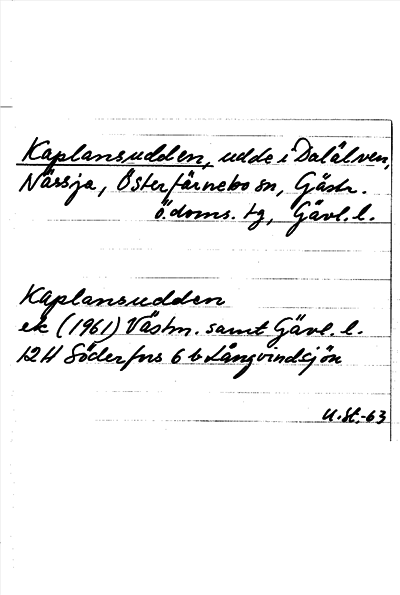 Kaplansudden, udde i Dalälven,
Nässja, Österfärnebo sn, Gästr.
ö. doms. tg, Gävl. l.
Kaplansudden
ek (1961) Västm. samt Gävl. l.
12H Söderfors 6 b Långvindsjön
U.St.-63